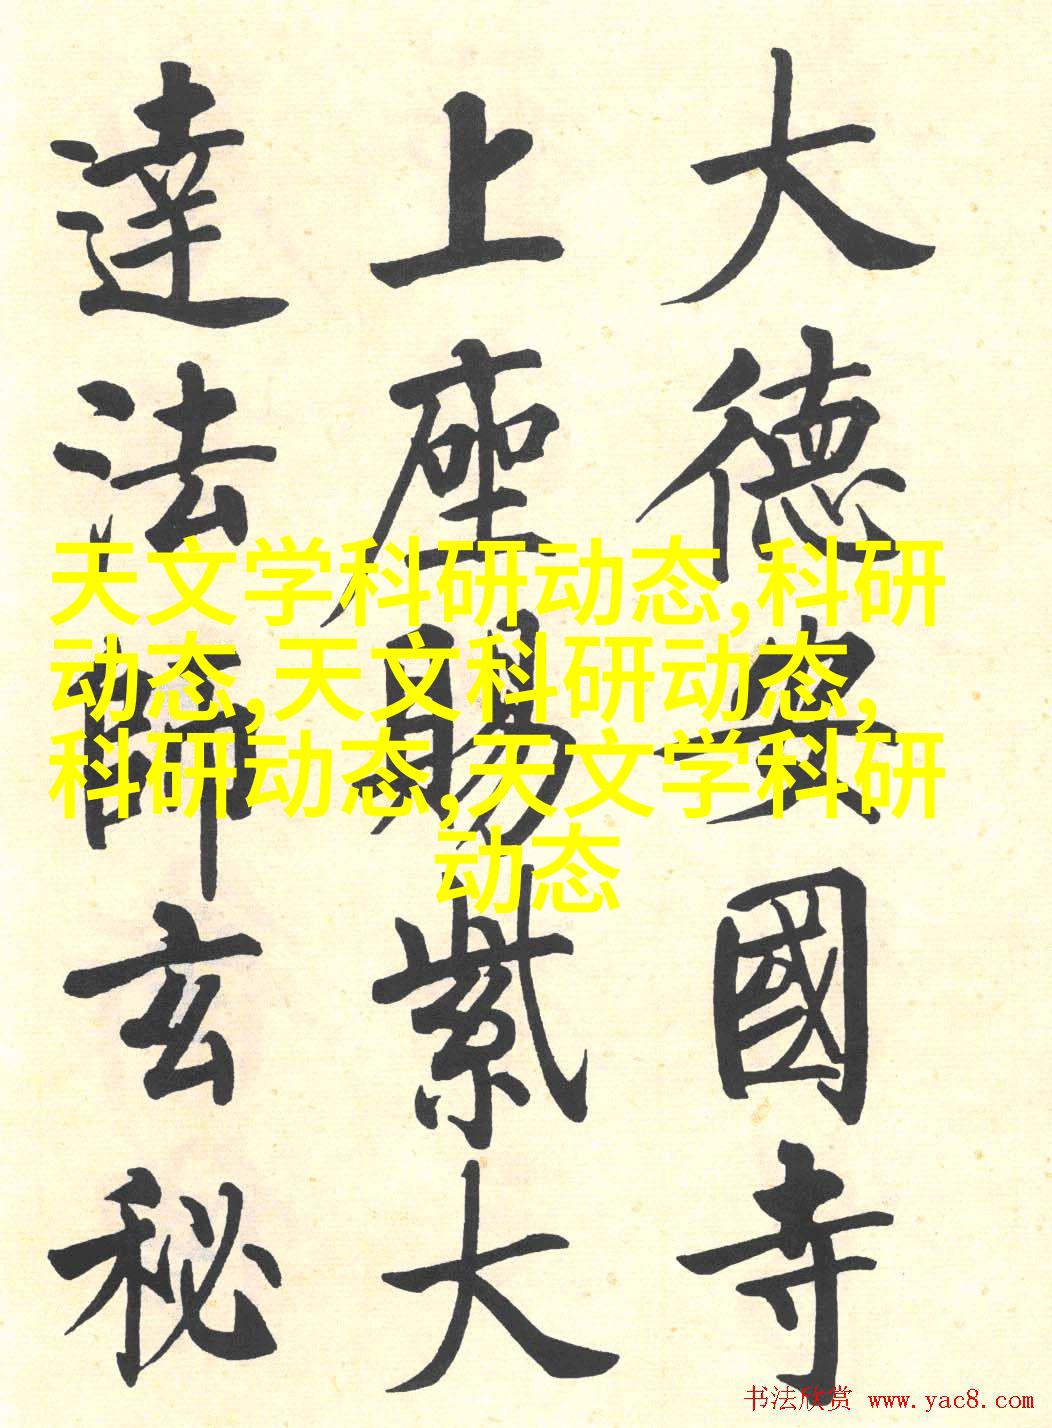 大德安國寺
上座賜紫大
達法師玄秘
天文学科研动态,科研
动态,天文科研动态,
科研动态,天文学科研
动态
书法欣赏 www.yac8.com